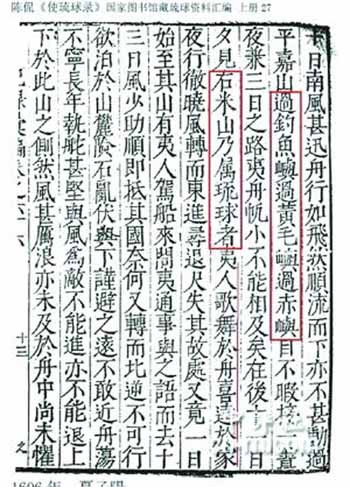 陈侃《使琉球录》国家图书馆藏琉球资料汇编 上册27
十日南風甚迅舟行如飛然順流而下亦不甚動過
平嘉山過釣魚嶼過黃毛嶼過赤嶼目不暇接一晝
夜兼三日之路夷舟帆小不能相及矣在後十一日
夕見石米山乃属琉球者夷人歌舞於舟喜達於家
夜行徹曉風轉而東進尋退尺失其故處又竟一日
始至其山有夷人駕船來問夷通事與之語而去十
三日風少助順即抵其國奈何又轉而北逆不可行
欲泊於山麓險石亂伏與下謹避之遠不敢近舟蕩
不寧長年執舵甚堅與風爲敵不能進亦不能退上
下於此山之側然風甚厲浪亦未及於舟中尚未懼
十三